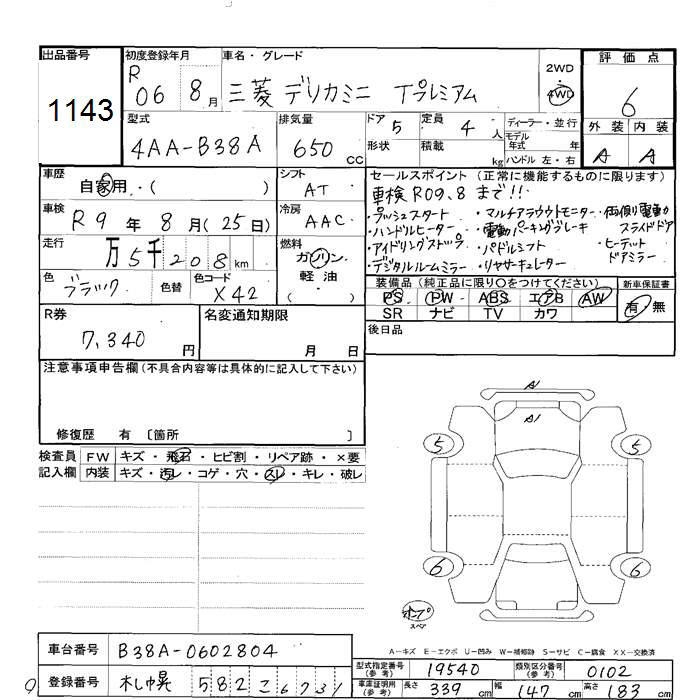 出品番号 初度登録年月 車名・グレード 評価点
1143 R 06 8月 三菱 デリカミニ Tプレミアム 2WD・4WD 6
型式 排気量 ドア 5 定員 4人 ディーラー・並行 外装 内装
4AA-B38A 650cc 形状 積載 kg モデル年式 年 ハンドル 左・右 A A
車歴 シフト セールスポイント (正常に機能するものに限ります)
自家用・( ) AT 車検R09.8まで!!
車検 冷房 ・プッシュスタート ・マルチアラウンドモニター ・両側電動スライドドア
R9年8月(25日) AAC ・ハンドルヒーター ・電動パーキングブレーキ
走行 燃料 ・アイドリングストップ ・パドルシフト ・ヒーテッドドアミラー
万5千208km ガソリン ・デジタルルームミラー ・リヤサーキュレーター
色 色替 色コード 軽油 装備品(純正品に限り○をつけてください) 新車保証書
ブラック X42 ( ) PS PW ABS エアB AW 有・無
R券 名変通知期限 SR ナビ TV カワ
7,340円 月 日 後日品
注意事項申告欄(不具合内容等は具体的に記入して下さい)
修復歴 有 〔箇所 〕
A
A1
検査員 FW キズ・飛石・ヒビ割・リペア跡・×要 5 5
記入欄 内装 キズ・汚レ・コゲ・穴・スレ・キレ・破レ
6 6
オープ
スペア
A−キズ E−エクボ U−凹み W−補修跡 S−サビ C−腐食 XX−交換済
車台番号 B38A-0602804 型式指定番号(参考) 19540 類別区分番号(参考) 0102
登録番号 札幌 582こ6731 車庫証明用(参考) 長さ 339cm 幅 147cm 高さ 183cm